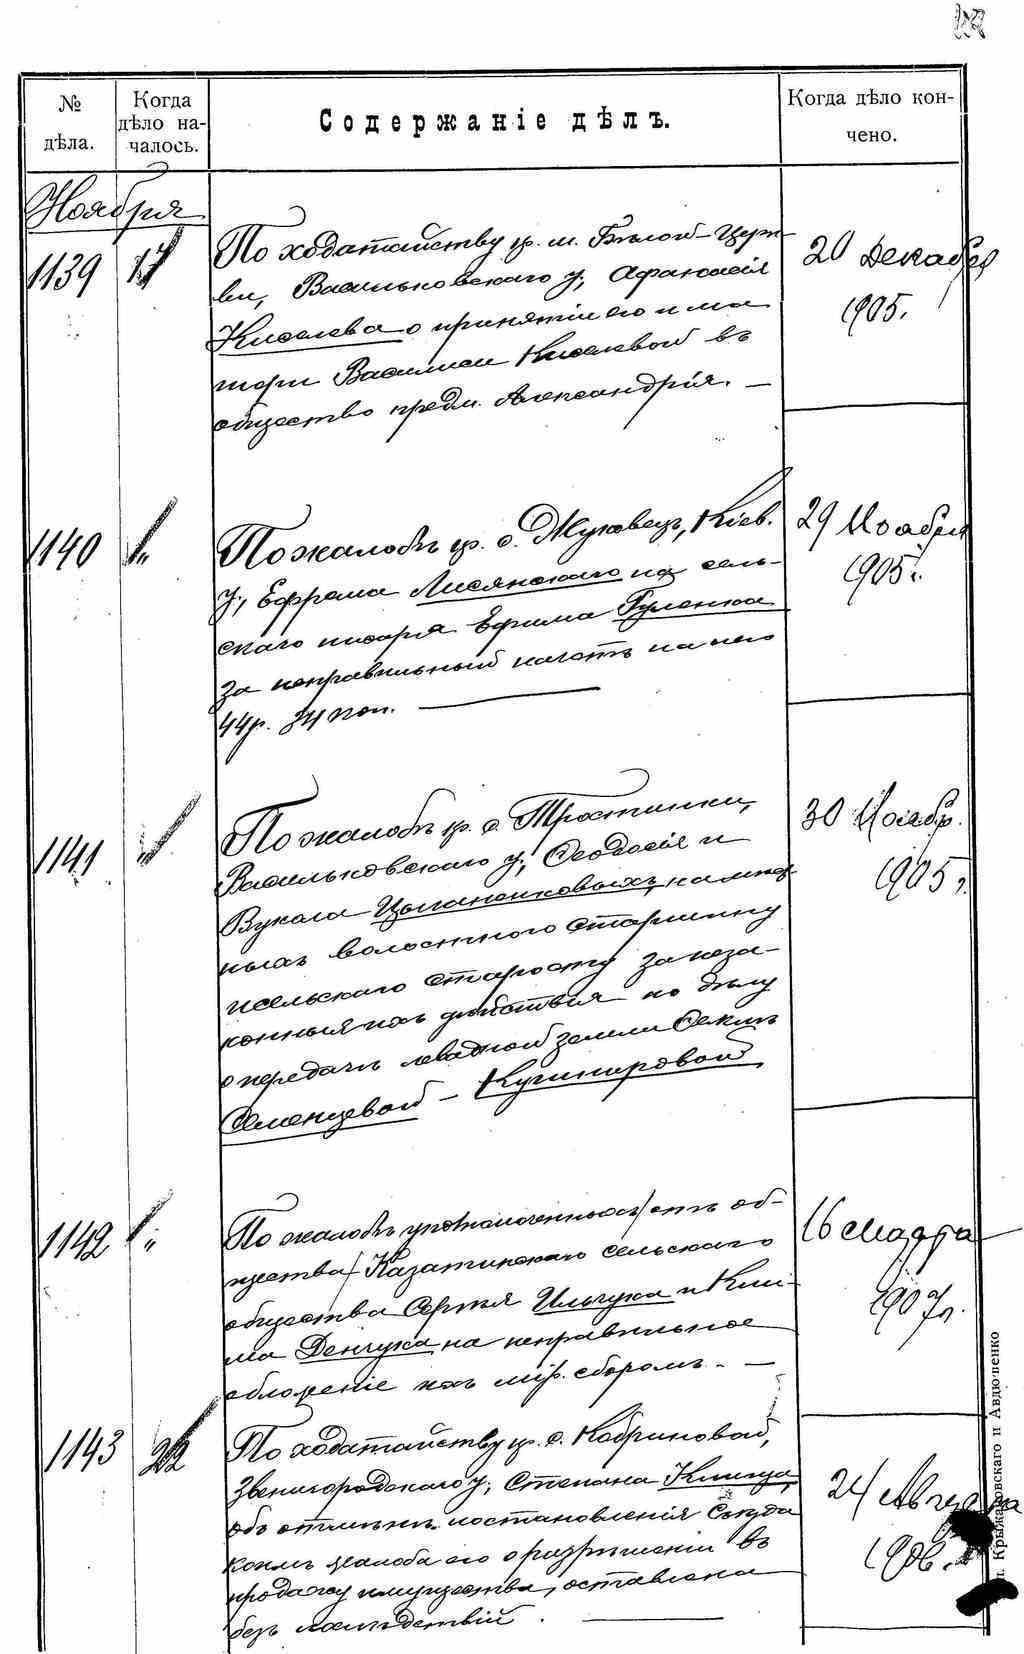 № дѣла.
Когда дѣло началось.
Содержаніе дѣлъ.
Когда дѣло кончено.
Ноября
1139
17
По ходатайству кр. м. Бѣлой-Церк-
ви, Васильковскаго у., Афанасія
Киселева о принятіи его и ма
тери Василисы Киселевой въ
общество предм. Александрія. —
20 Декабря
1905.
1140
"
По жалобѣ кр. с. Жуковецъ, Кіев.
у., Ефрема Лисянскаго на сель-
скаго писаря Ефима Гуленка
за неправильный начетъ на него
44р. 34 коп. —
29 Ноября
1905 г.
1141
"
По жалобѣ кр. с. Тростинки,
Васильковскаго у., Ѳеодосія и
Вукола Цыганенковыхъ, на мѣст-
ныхъ волостного старшину
и сельскаго старосту за неза-
конныя ихъ дѣйствія по дѣлу
о передачѣ левадной земли
Семенцевой - Кушнировой
30 Ноябр.
1905 г.
1142
"
По жалобѣ уполномоченныхъ /отъ об-
щества/ Казатинскаго сельскаго
общества Сергѣя Ильчука и Кли-
ма Денчука на неправильное
обложеніе ихъ мір. сборомъ. —
16 Марта
1907 г.
1143
22
По ходатайству кр. с. Кобриновой,
Звенигородскаго у., Степана Клища,
объ отмѣнѣ постановленія Съѣзда
коимъ жалоба его о разрѣшеніи въ
продажу имущества, оставлена
безъ послѣдствій. —
24 Августа
1906.
Крыжановскаго и Авдюшенко